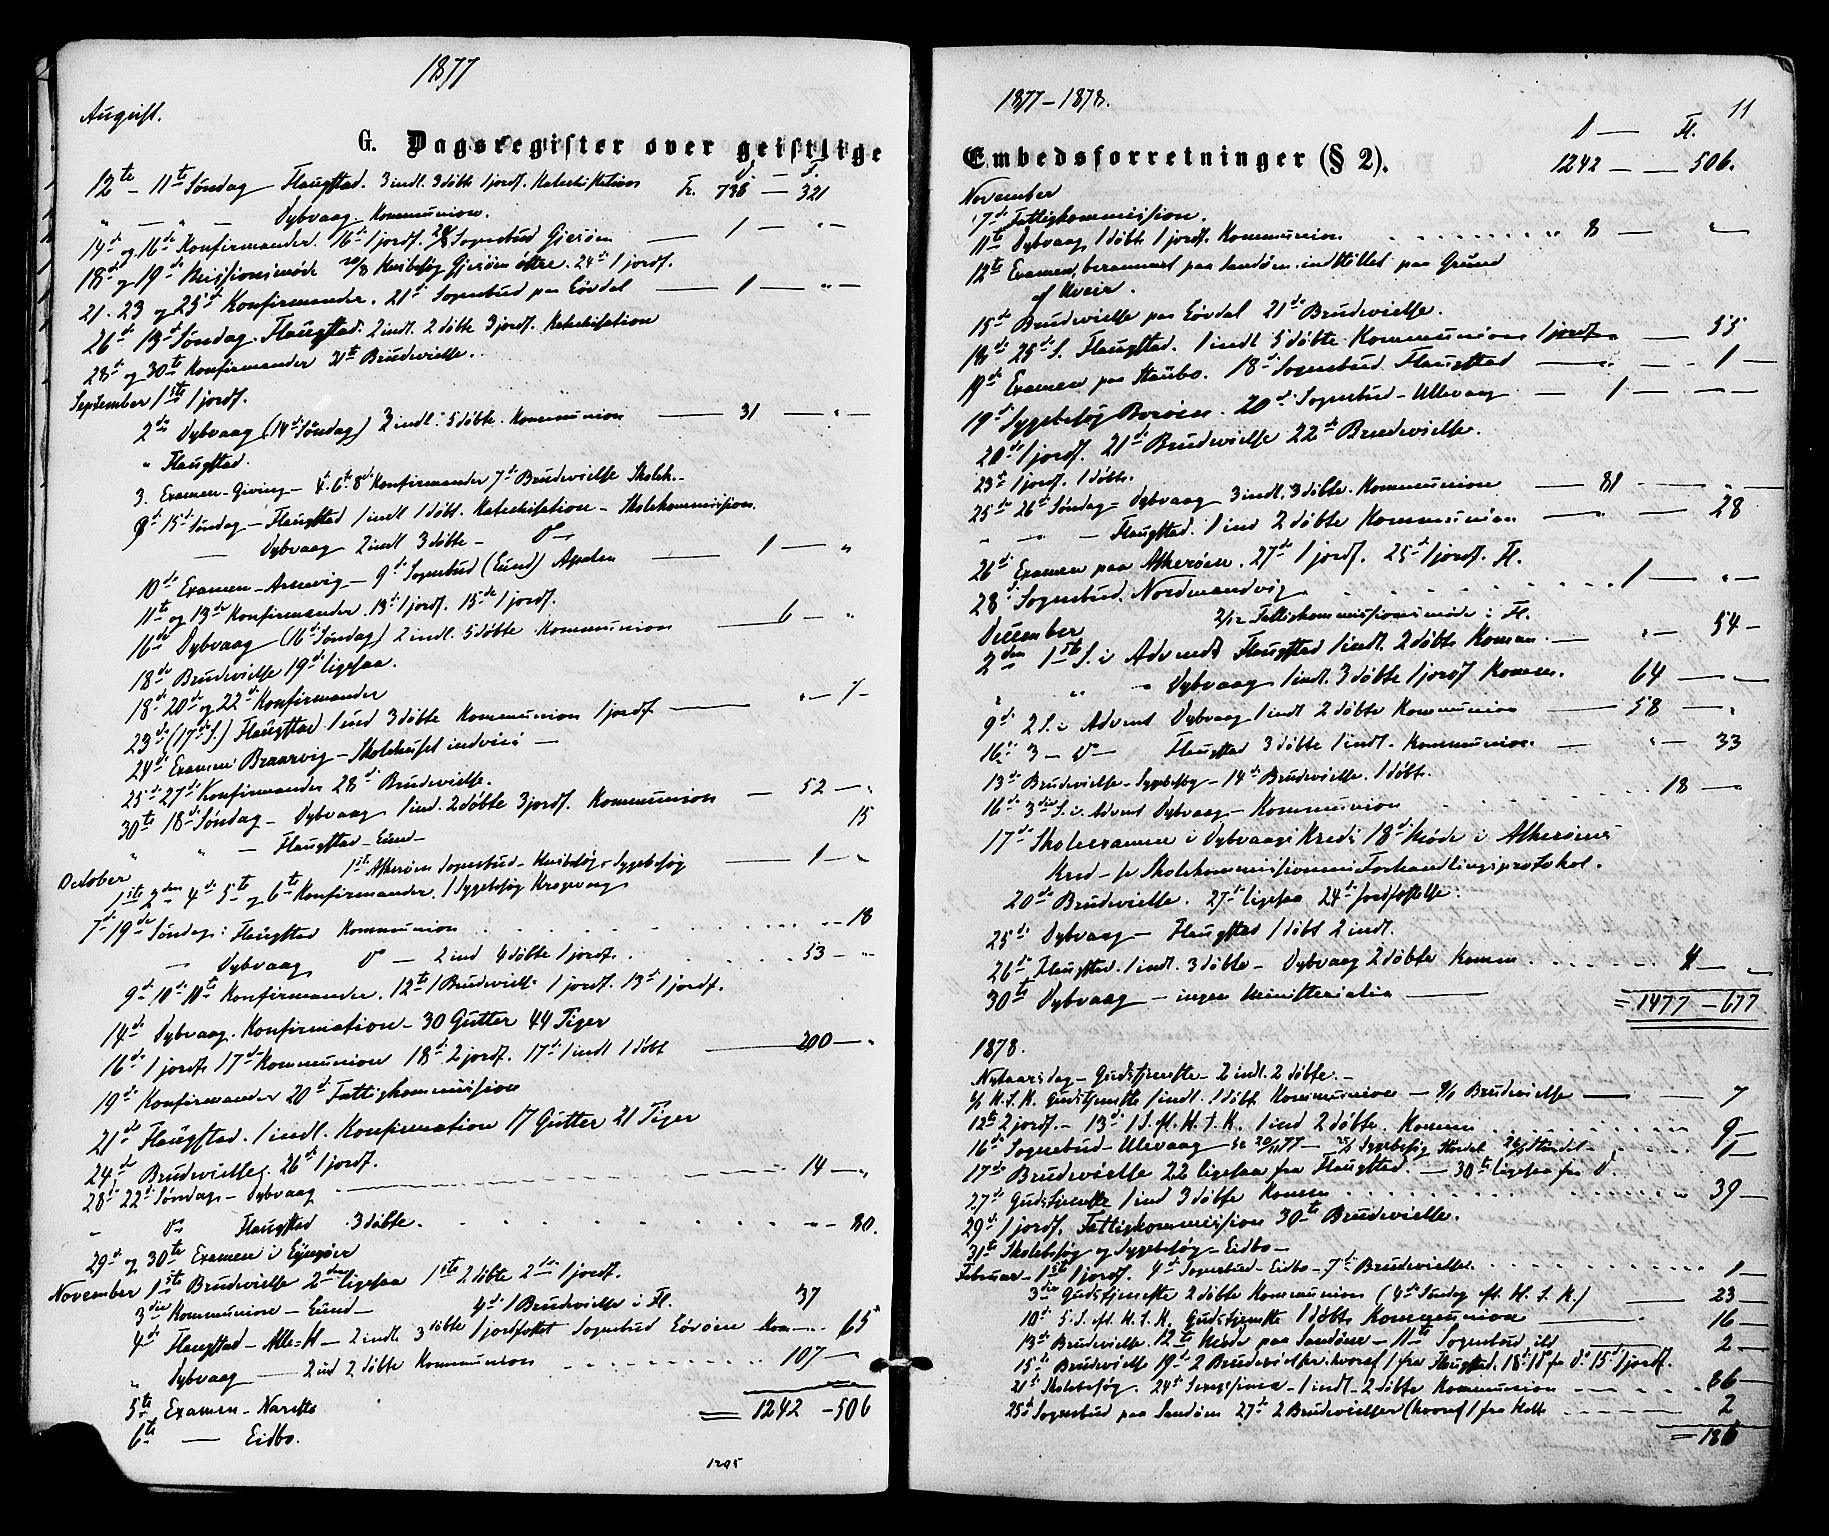 1877
August.
G. Dagsregister over geistlige
D. — F.
12te – 11te Søndag – Flaugstad. 3 indl. 3 døbte 1 jordf. Katechisation Fr. 738 – 321
" — " — Dybvaag – Kommunion. " —
14de og 16de Konfirmander. 16de 1 jordf. Sognebud Gjerøen — 1 —
18de og 19de Missionsmøde 20/8 Husbesøg Gjerøen østre. 24de 1 jordf.
21. 23 og 25de Konfirmander. 21de Sognebud paa Løvdal — 1 — " —
26de 13de Søndag. Flaugstad. 2 indl. 2 døbte 3 jordf. Katechisation
28de og 30te Konfirmander Brudevielse.
September 1ste 1 jordf.
2den Dybvaag (14de Søndag) 3 indl. 5 døbte. Kommunion — 31 — " —
" Flaugstad.
3. Examen – Giving – 4. 6te 8de Konfirmander 7de Brudevielse Skolek. –
9de 15de Søndag – Flaugstad 1 indl 1 døbt. Katechisation – Skolekommission.
— Dybvaag 2 indl 3 døbte – Do —
10de Examen – Arnevig – 9de Sognebud (Lund) — 1 — "
11te og 13de Konfirmander. 13de 1 jordf. 15de 1 jordf.
16de Dybvaag (16de Søndag) 2 indl. 5 døbte Kommunion — 6 — "
18de Brudevielse 19de ligesaa.
18de 20de og 22de Konfirmander
23de (17de S.) Flaugstad 1 ind 3 døbte Kommunion 1 jordf —
24de Examen Braarvig – Skolehuset indviet —
25de 27de Konfirmander 28de Brudevielse.
30te 18de Søndag – Dybvaag 1 ind. 2 døbte 3 jordf. Kommunion — 52 — "
" " — Flaugstad – Lund — 15
October 1ste Askerøen Sognebud – Husbesøg – Sygebesøg — 1 — "
1ste 2den 4de 5te og 6te Konfirmander. 1 Sygebesøg Krogvaag
7de 19de Søndag: Flaugstad Kommunion . . . . " – 18
— Dybvaag Do — 2 ind 4 døbte 1 jordf. . . . 53 – "
9de 10de Konfirmander. 12te 1 Brudevielse 1 jordf. 13de 1 jordf.
14de Dybvaag. Konfirmation – 30 Gutter 44 Piger
16de 1 jordf. 17de Kommunion 18de 2 jordf. 17de 1 indl 1 døbt — 200 — "
19de Konfirmander 20de Fattigkommission
21de Flaugstad. 1 indl. Konfirmation 17 Gutter 21 Piger
24de Brudevielse. 26de 1 jordf.
28de 22de Søndag – Dybvaag — 14 — "
" Do Flaugstad 3 døbte . . . . " – 80.
29de og 30te Examen i Lyngøer
November 1ste Brudevielse 2den ligesaa 1ste 2 døbte 2den 1 jordf.
3die Kommunion – Lund – 4de 1 Brudevielse i Fl. 37
4de Flaugstad – Alle-H – 2 indl. 3 døbte 1 jordfæstet Sognebud Kom — 65
" Dybvaag — 2 ind 2 døbte Kommunion . . . 107 —
5te Examen – = 1242 – 506
6te — Eidbo.
1295
1877–1878. 11
Embedsforretninger (§ 2).
D — Fl.
1242 — — 506.
November
7de Fattigkommission.
11te Dybvaag 1 døbt 1 jordf. Kommunion . . . . 8 — " —
12te Examen, berammet paa Sandøen, indstillet paa Grund
af Uveir.
15de Brudevielse paa Løvdal 21de Brudevielse.
18de 25de S. Flaugstad. 1 indl 5 døbte Kommunion 1 jordf — 55
19de Examen paa Staubo. 18de Sognebud. Flaugstad — 1 —
19de Sygebesøg Borøen. 20de Sognebud – Ullevaag — 1 — —
20de 1 jordf. 21de Brudevielse 22de Brudevielse.
23de 1 jordf. 1 døbt.
25de 26de Søndag – Dybvaag 3 indl. 3 døbte. Kommunion — 81 — " —
" — " — Flaugstad. 1 ind 2 døbte Kommunion — 28
26de Examen paa Askerøen. 27de 1 jordf. 25de 1 jordf. Fl.
28de Sognebud, Nordmandvig . . . . 1 — " —
December 2/12 Fattigkommissionsmøde i Fl.
2den 1ste S. i Advent Flaugstad 1 indl. 2 døbte Komm. — " — 54 —
" " — Dybvaag 1 indl. 3 døbte 1 jordf Komm. 64 — —
9de 2 S. i Advent Dybvaag 1 indl 2 døbte Kommunion — 58 — "
16de 3 – Do — Flaugstad 3 døbte 1 indl. Kommunion. — " — 33
13de Brudevielse – Sygebesøg – 14de Brudevielse. 1 døbt.
16de 3die S. i Advent Dybvaag – Kommunion . . . . 18 — "
17de Skoleexamen i Dybvaags Kreds 18de Møde i Askerøens
Kred – se Skolekommissionens Forhandlingsprotokol.
20de Brudevielse. 27de ligesaa 24de jordfæstelse.
25de Dybvaag – Flaugstad 1 døbt 2 indl.
26de Flaugstad. 1 indl. 3 døbte – Dybvaag 2 døbte Komm . . . . 4 — "
30te Dybvaag – ingen Ministerialia — = 1477 – 677
1878.
Nytaarsdag – Gudstjeneste – 2 indl. 2 døbte. –
6/1 H. 3. K. Gudstjeneste 1 indl. 1 døbt Kommunion — 9/1 Brudevielse — 7
12te 2 jordf. – 13de 1 S. ef. H. 3. K. 1 ind 2 døbte. Komm . . . . 9 —
16de Sognebud – Ullevaag – se 20/11 77 – Sygebesøg . . . 1 —
17de Brudevielse 22 ligesaa fra Flaugstad. — 30te ligesaa fra Do.
27de Gudstjeneste 1 ind 3 døbte Komm . . . . 39 —
29de 1 jordf. Fattigkommission 30te Brudevielse.
31te Skolebesøg og Sygebesøg – Eidbo –
Februar – 1ste 1 jordf. 4de Sognebud – Eidbo – 7de Brudevielse. . . . 1 —
3die Gudstjeneste 2 døbte Kommunion (4de Søndag eft. H. 3. K.) — 23 —
10de 5. S. eft. H. 3. K. Gudstjeneste 1 døbt Kommunion — 16 —
13de Brudevielse. 12te Møde paa Sandøen – 11te Sognebud — 2 —
15de Brudevielse 19de 2 Brudevielser hvoraf 1 fra Flaugstad. 18de Do fra Do 15de 1 jordf.
21de Skolebesøg. 24de – 1 indl – 2 døbte Kommunion — 86 —
25de Sognebud paa Sandøen 27de 2 Brudevielser (hvoraf 1 fra Holt — 2
= 186